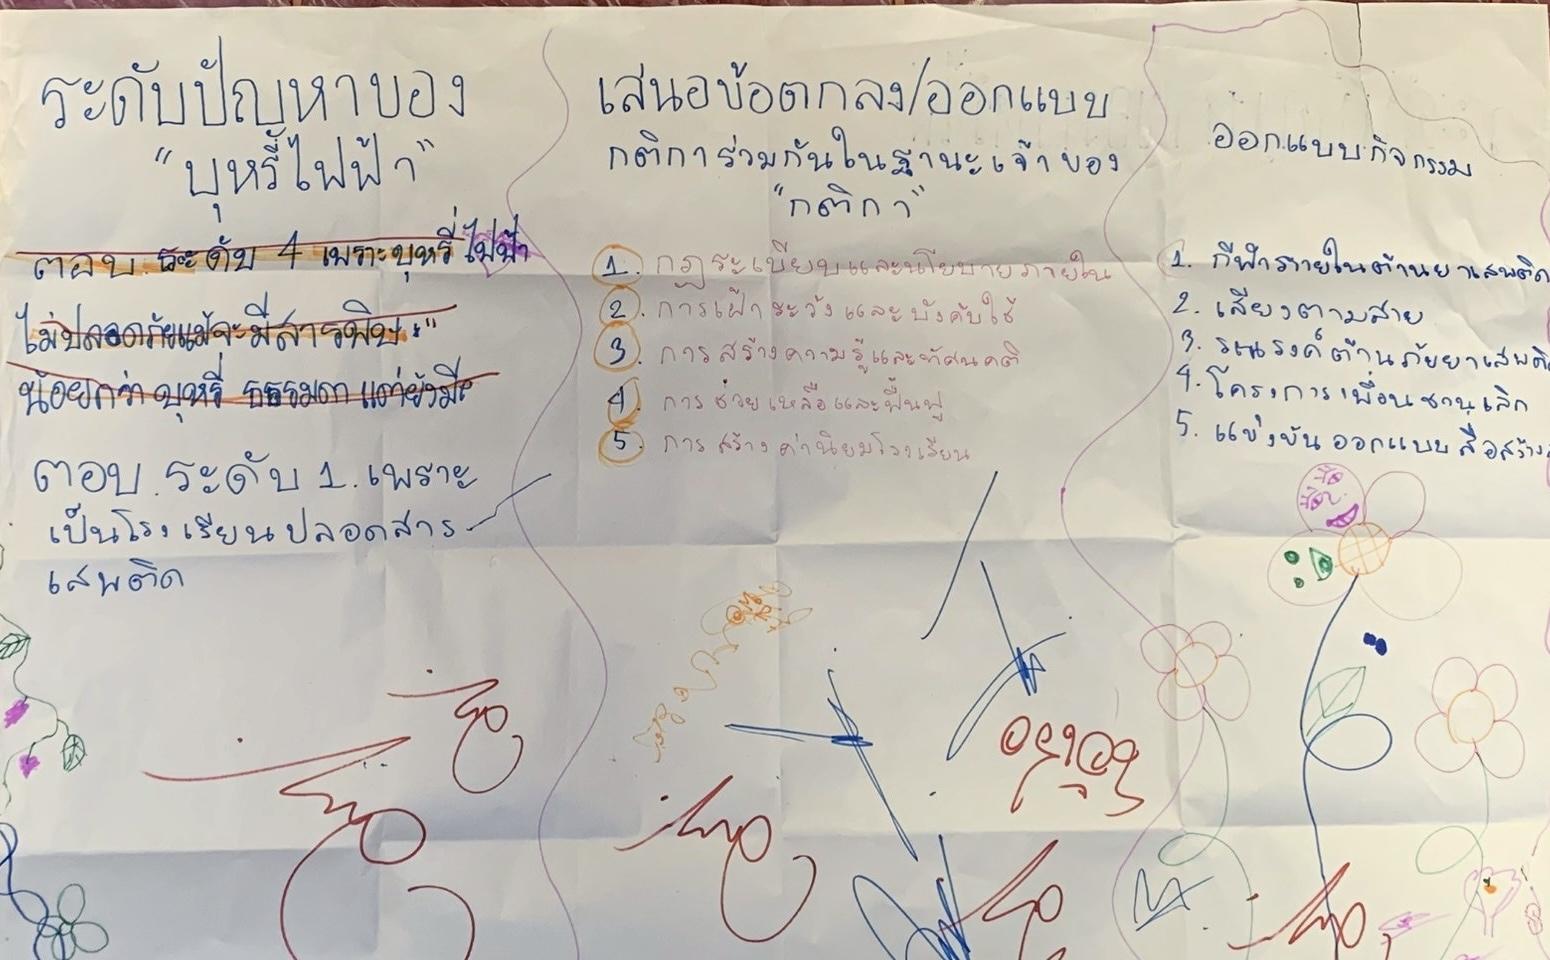 ระดับปัญหาของ
"บุหรี่ไฟฟ้า"
ตอบ ระดับ 4 เพราะบุหรี่ ไฟฟ้า
ไม่ปลอดภัยแม้จะมีสารพิษ
น้อยกว่า บุหรี่ ธรรมดา แต่ยังมี
ตอบ ระดับ 1. เพราะ
เป็นโรงเรียนปลอดสาร
เสพติด
เสนอข้อตกลง/ออกแบบ
กติการ่วมกันในฐานะเจ้าของ
"กติกา"
1. กฎระเบียบและนโยบายภายใน
2. การเฝ้าระวังและบังคับใช้
3. การสร้างความรู้และทัศนคติ
4. การช่วยเหลือและฟื้นฟู
5. การสร้างค่านิยมโรงเรียน
ออกแบบกิจกรรม
1. กีฬาภายในต้านยาเสพติด
2. เสียงตามสาย
3. รณรงค์ต้านภัยยาเสพติ
4. โครงการเพื่อนชวนเลิก
5. แข่งขันออกแบบสื่อสร้าง